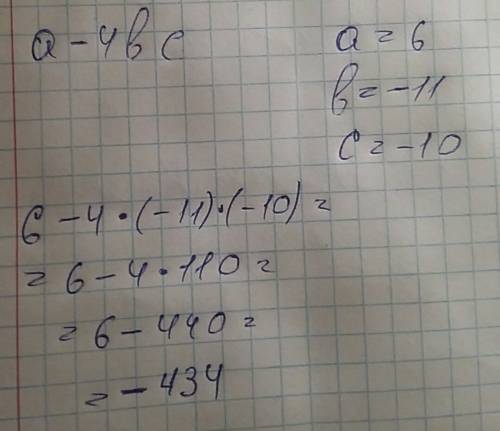 a - 4bc
a = 6
b = -11
c = -10
6 - 4 · (-11) · (-10) =
= 6 - 4 · 110 =
= 6 - 440 =
= - 434